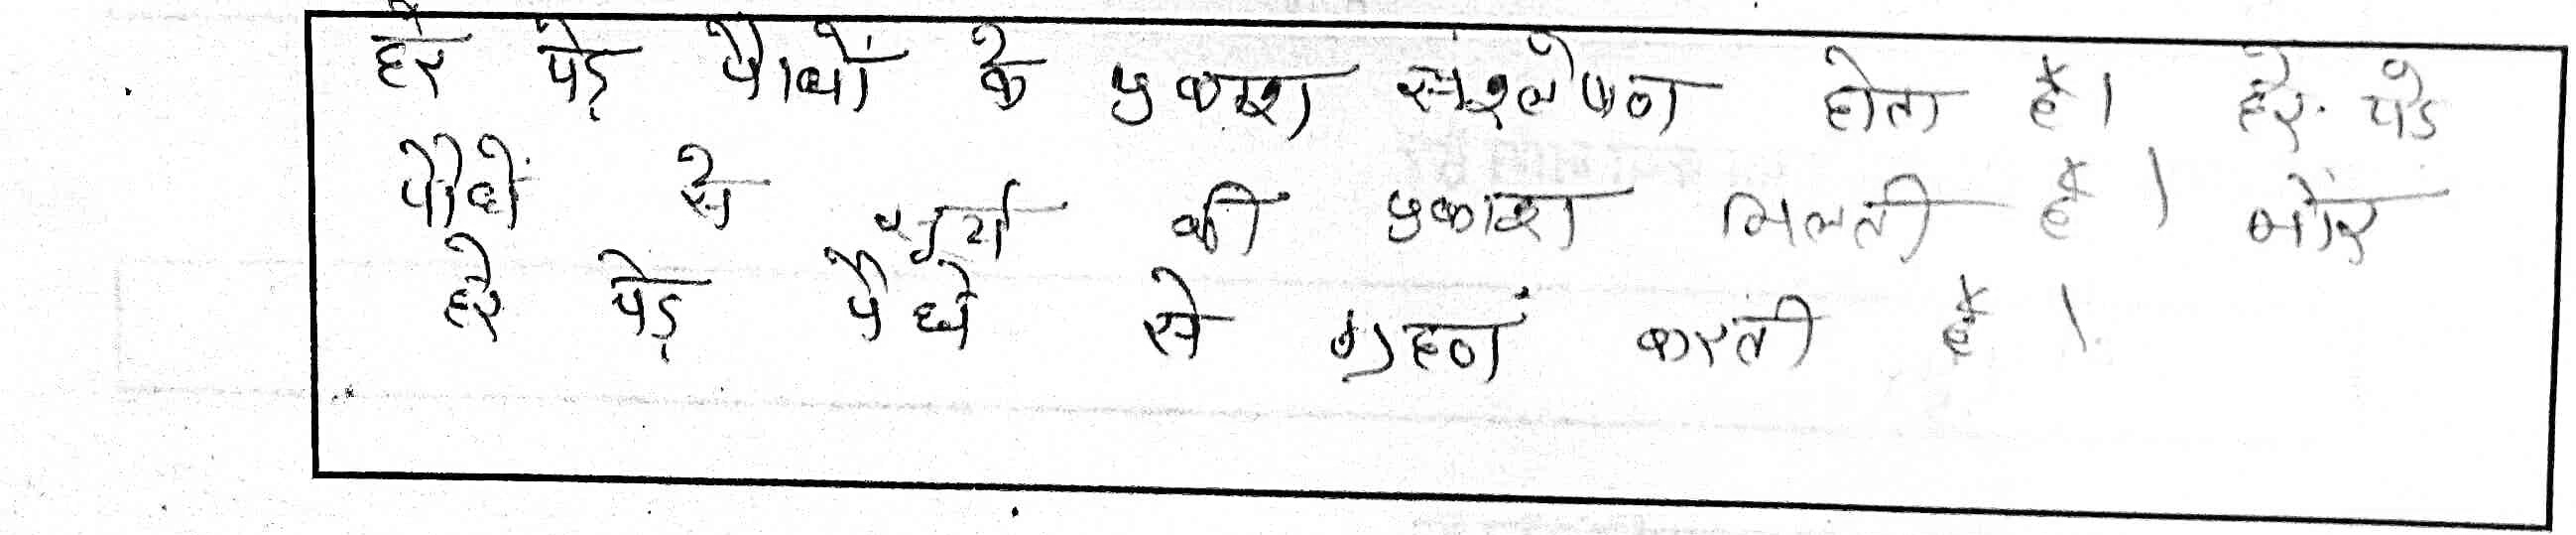 हरे पेड़ पौधों के प्रकाश संश्लेषण होता है। हरे पेड
पौधों से सूर्य की प्रकाश मिलती है। और
हरे पेड़ पैधे से ग्रहणं करती है।